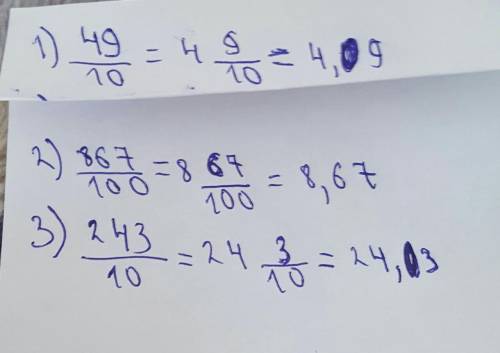 1) 49/10 = 4 9/10 = 4,9
2) 867/100 = 8 67/100 = 8,67
3) 243/10 = 24 3/10 = 24,3